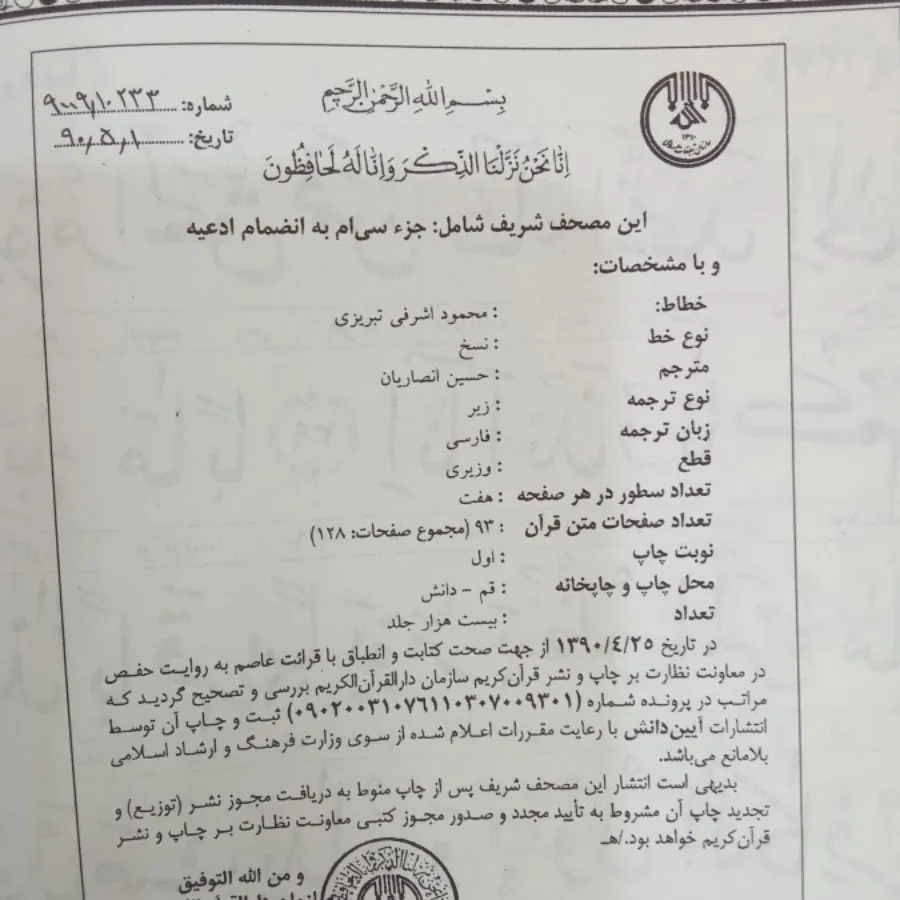 بِسْمِ اللهِ الرَّحْمٰنِ الرَّحِيمِ
شماره: ۹۰۰۹/۱۰۲۳۳
تاریخ: ۹۰/۵/۱
اِنّا نَحْنُ نَزَّلْنَا الذِّكْرَ وَاِنّا لَهُ لَحافِظُونَ
این مصحف شریف شامل: جزء سی‌ام به انضمام ادعیه
و با مشخصات:
خطاط: : محمود اشرفی تبریزی
نوع خط : نسخ
مترجم : حسین انصاریان
نوع ترجمه : زیر
زبان ترجمه : فارسی
قطع : وزیری
تعداد سطور در هر صفحه : هفت
تعداد صفحات متن قرآن : ۹۳ (مجموع صفحات: ۱۲۸)
نوبت چاپ : اول
محل چاپ و چاپخانه : قم - دانش
تعداد : بیست هزار جلد
در تاریخ ۱۳۹۰/٤/۲۵ از جهت صحت کتابت و انطباق با قرائت عاصم به روایت حفص
در معاونت نظارت بر چاپ و نشر قرآن‌کریم سازمان دارالقرآن‌الکریم بررسی و تصحیح گردید که
مراتب در پرونده شماره (۰۹۰۲۰۰۳۱۰۷۶۱۱۰۳۰۷۰۰۹۳۰۱) ثبت و چاپ آن توسط
انتشارات آیین‌دانش با رعایت مقررات اعلام شده از سوی وزارت فرهنگ و ارشاد اسلامی
بلامانع می‌باشد.
بدیهی است انتشار این مصحف شریف پس از چاپ منوط به دریافت مجوز نشر (توزیع) و
تجدید چاپ آن مشروط به تأیید مجدد و صدور مجوز کتبی معاونت نظارت بر چاپ و نشر
قرآن‌کریم خواهد بود./هـ
و من الله التوفیق